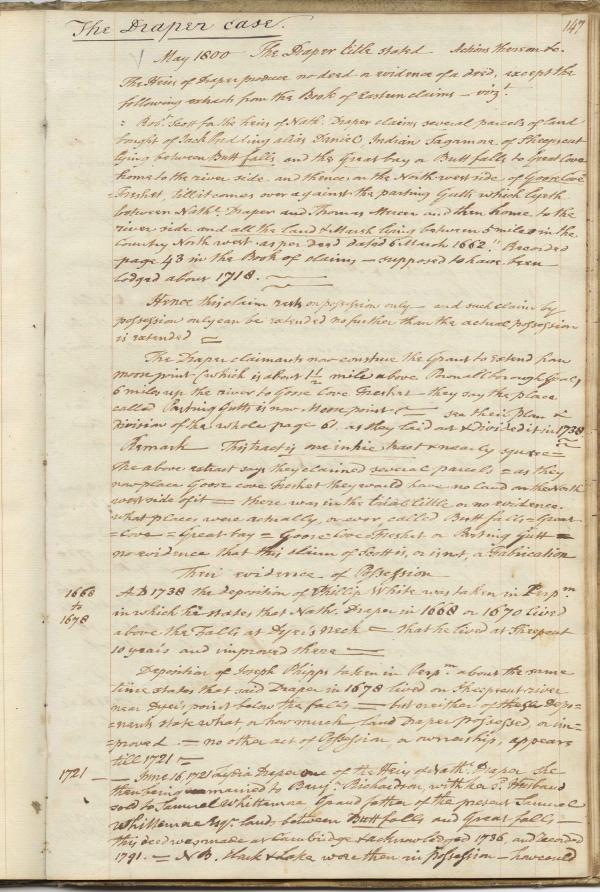 The Draper case.
147
May 1800 The Draper title stated. Actions thereon &c.
The Heirs of Draper produce no deed or evidence of a deed, except the
following extract from the Book of Eastern claims – vizt.
: Robt. Scott for the heirs of Nathl. Draper claims several parcels of land
bought of Jack Pudding alias Daniel, Indian Sagamore of Sheepscut
lying between Butt falls and the Great bay or Butt falls to Great Cove
home to the river side and thence on the North west side of Goose Cove
=Freshet, till it comes over against the parting Gutts which lyeth
between Nathl. Draper and Thomas Mercer and then home to the
river side and all the land & Marsh lying between 5 miles in the
Country North west, as per deed dated 6 March 1662." Recorded
page 43 in the Book of claims – supposed to have been
lodged about 1718.
Hence this claim rests on possession only – and such claim by
possession only can be extended no further than the actual possession
is extended =
The Draper claimants now construe the Grant to extend from
moon point (which is about 1½ mile above Pownalborough Goal,
6 miles up the river to Goose Cove Freshet – they say the place
called Parting Gutts is now Moon point = see their plan &
Division of the whole page 61. as they laid out & divided it in 1738
Remark This tract is one intire tract & nearly square =
the above extract says they claimed several parcels = as they
now place Goose cove Freshet they would have no land on the North
west side of it = there was in the trial little or no evidence
what places were actually, or ever, called Butt falls = Great
=Cove = Great bay = Goose Cove Freshet or Parting Gutt =
no evidence that this claim of Scott is, or is not, a Fabrication
Their evidence of Possession
1668
to
1678
AD 1738 the deposition of Phillip White was taken in Perpm.
in which he states that Nathl. Draper in 1668 or 1670 lived
above the Falls at Dyer's Neck = that he lived at Sheepscut
10 years and improved there =
Deposition of Joseph Phipps taken in Perpm. about the same
time states that said Draper in 1678 lived on Sheepscut river
near Dyers point below the falls = but neither of these Depo-
=nants state what or how much land Draper possessed, or im=
=proved. – no other act of Possession, or ownership, appears
till 1721 =
1721 –
– June 16, 1721 Lydia Draper one of the Heirs of Nathl. Draper she
then being married to Benj. Richardson, with her sd. Husband
sold to Samuel Whittemore Grandfather of the present Samuel
Whittemore Esqr. lands between Butt falls and Great falls –
this deed was made at Cambridge & acknowledged 1736, and recorded
1791. = NB. Clark & Lake were then in possession – how could